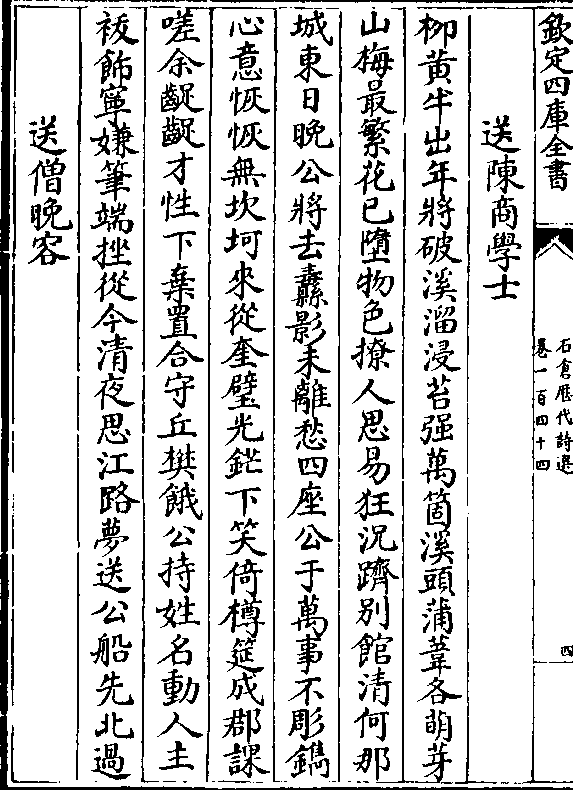 欽定四庫全書
石倉歷代詩選
卷一百四十四
四
送陳商學士
柳黃半出年將破溪溜浸苔强萬箇溪頭蒲葦各萌芽
山梅最繁花已墮物色撩人思易狂況躋别館清何那
城東日晚公將去纛影未離愁四座公于萬事不彫鐫
心意恢恢無坎坷來從奎璧光鋩下笑倚樽筵成郡課
嗟余齪齪才性下棄置合守丘樊餓公持姓名動人主
袚飾寧嫌筆端挫從今清夜思江路夢送公船先北過
送僧晚容